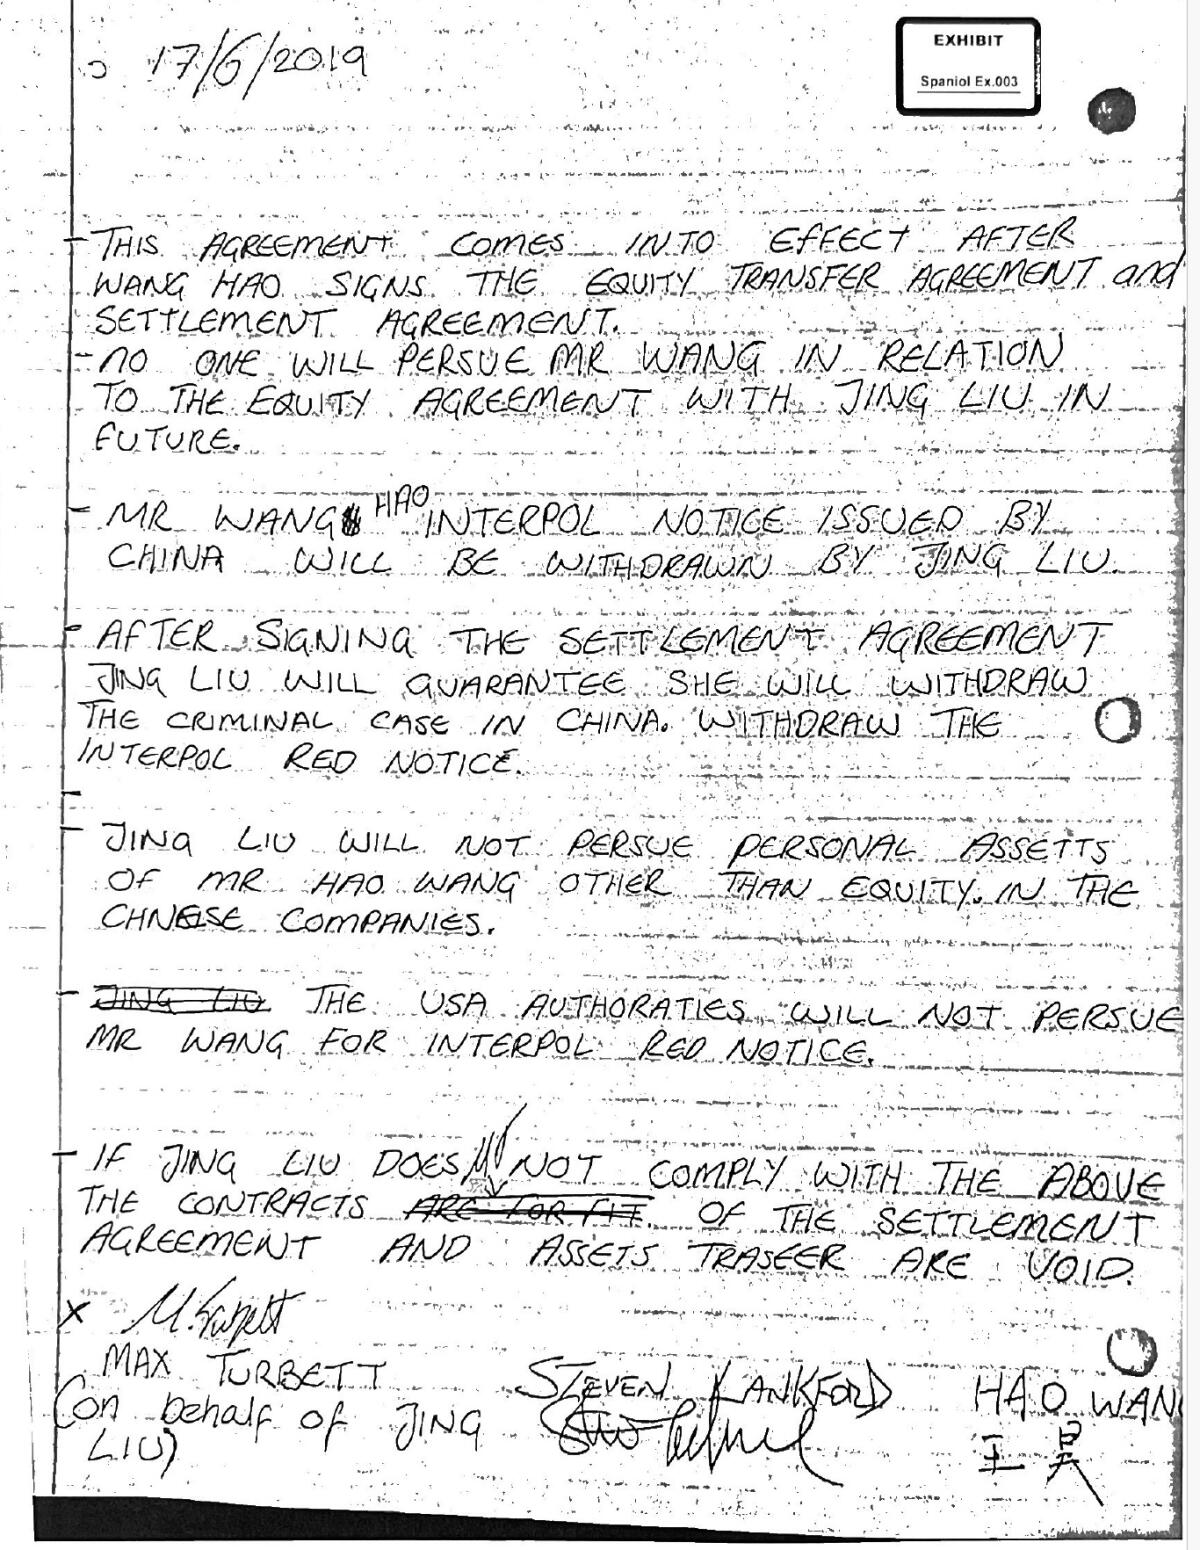 17/6/2019
EXHIBIT
Spaniol Ex.003
- THIS AGREEMENT COMES INTO EFFECT AFTER
WANG HAO SIGNS THE EQUITY TRANSFER AGREEMENT and
SETTLEMENT AGREEMENT.
- NO ONE WILL PERSUE MR WANG IN RELATION
TO THE EQUITY AGREEMENT WITH JING LIU IN
FUTURE.
- MR WANG HAO INTERPOL NOTICE ISSUED BY
CHINA WILL BE WITHDRAWN BY JING LIU.
- AFTER SIGNING THE SETTLEMENT AGREEMENT
JING LIU WILL GUARANTEE SHE WILL WITHDRAW
THE CRIMINAL CASE IN CHINA. WITHDRAW THE
INTERPOL RED NOTICE.
-
- JING LIU WILL NOT PERSUE PERSONAL ASSETTS
OF MR HAO WANG OTHER THAN EQUITY IN THE
CHNESE COMPANIES.
- JING LIU THE USA AUTHORATIES WILL NOT PERSUE
MR WANG FOR INTERPOL RED NOTICE.
- IF JING LIU DOES NOT COMPLY WITH THE ABOVE
THE CONTRACTS ARE FOR FIT OF THE SETTLEMENT
AGREEMENT AND ASSETS TRASEER ARE VOID.
X M.Turbett
MAX TURBETT
(on behalf of JING
LIU)
STEVEN LANKFORD
HAO WANG
王昊